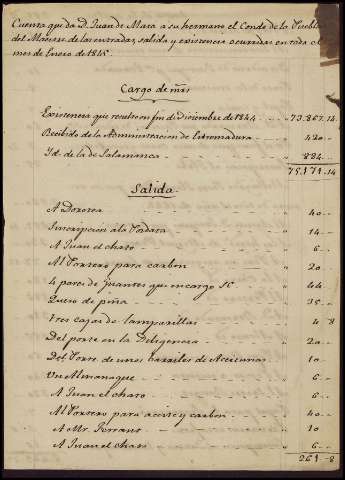 Cuenta que da D. Juan de Mata a su hermano el Conde de la Puebla
del Maestre de las entradas, salida y existencia ocurridas en todo el
mes de Enero de 1845.
Cargo de mrs
Existencia que resultó en fin de diciembre de 1844 " 73.867.14
Recibido de la Administracion de Estremadura " 420
Yd. de la de Salamanca " 884
75.171.14
Salida
A Dorotea " 40
Suscripcion á la Postdata " 14
A Juan el chato " 6
Al Portero para carbon " 20
4 pares de guantes que encargo " 44
Queso de piña " 35
Tres cajas de lamparillas " 4 8
Del porte en la Diligencia " 20
Del Porte de unos barriles de Aceitunas " 10
Un Almanaque " 6
A Juan el chato " 6
Al Portero para aceite y carbon " 40
A Mr. Ferrant " 10
A Juan el chato " 6
261-8